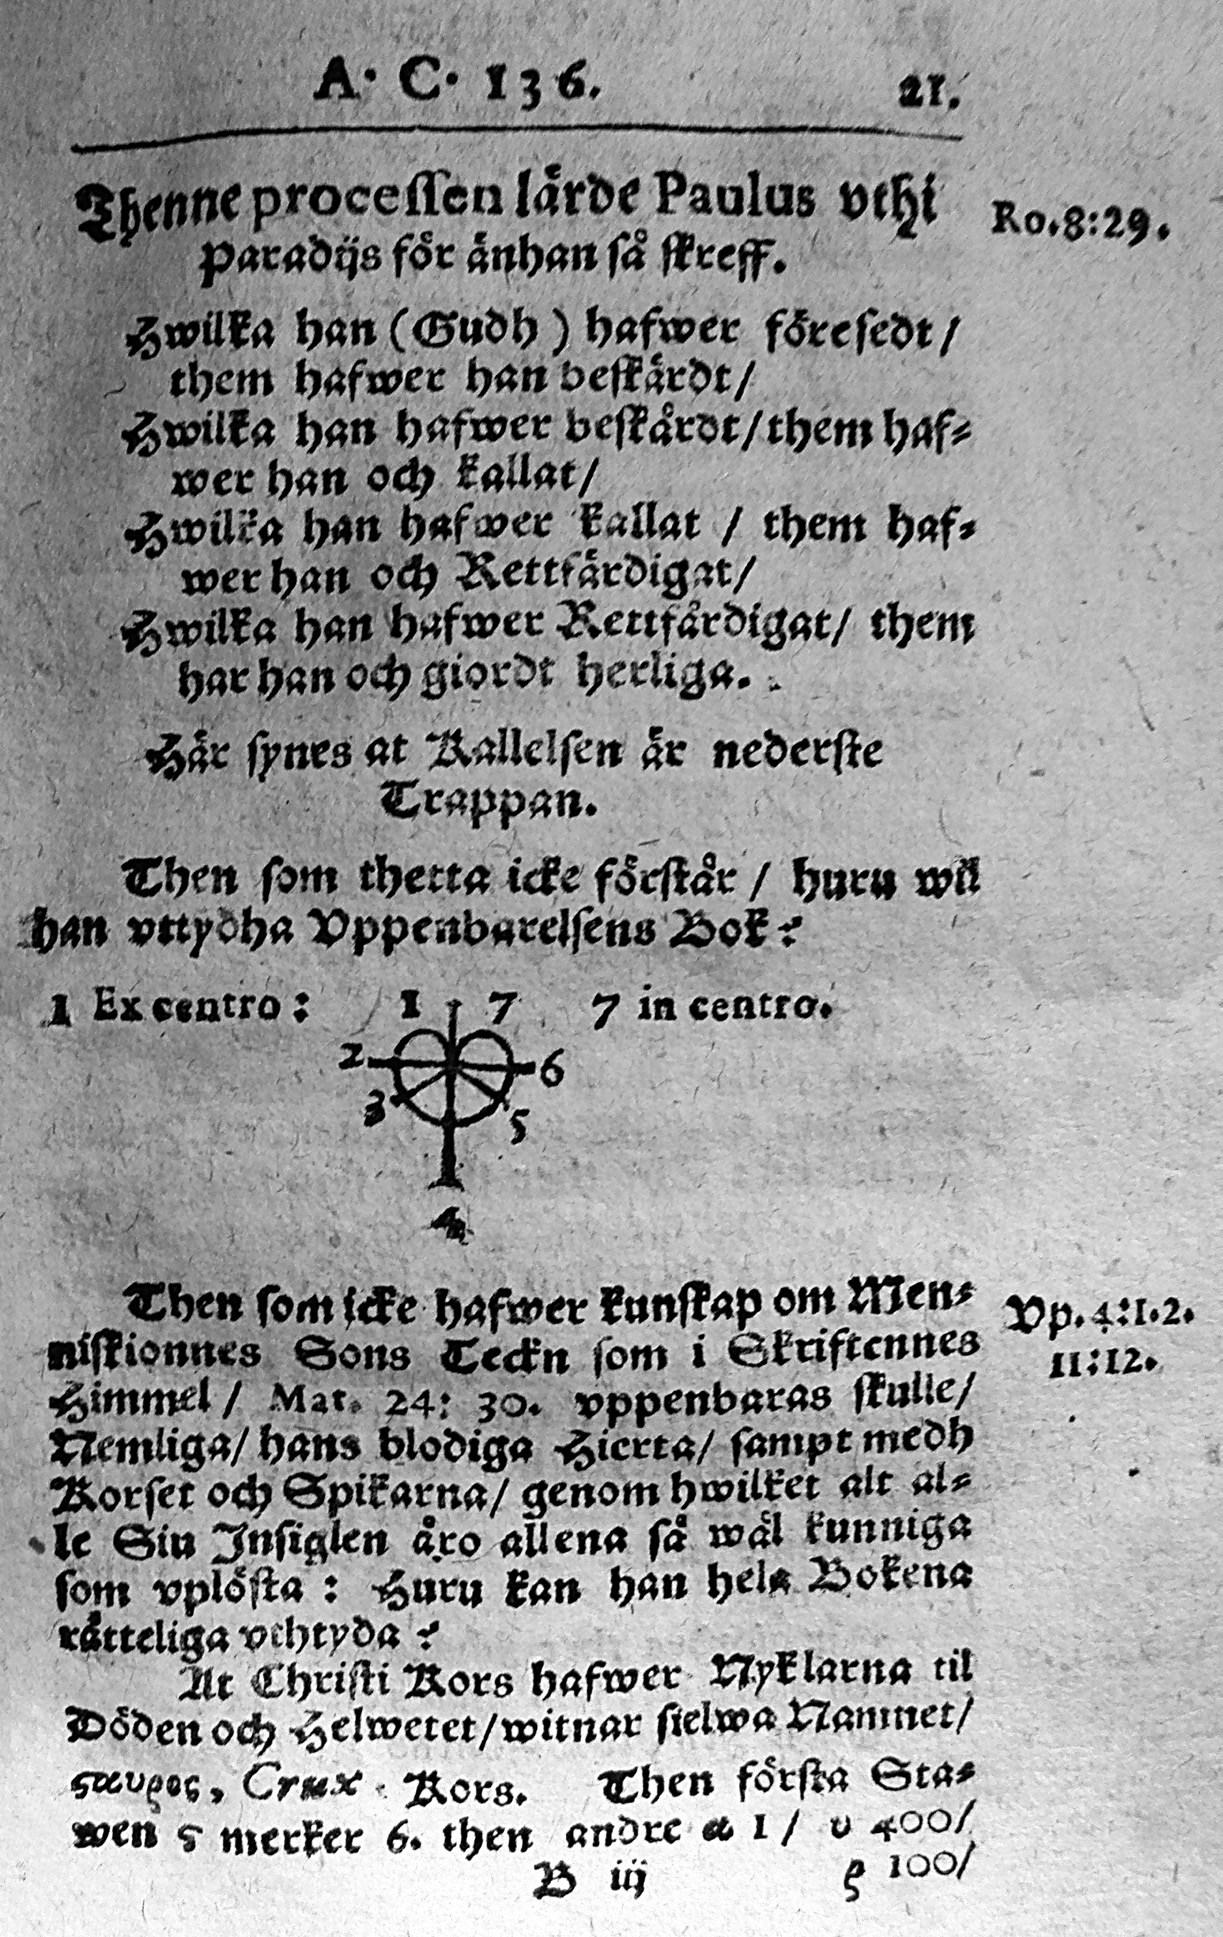 A. C. 136. 21.
Thenne processen lärde Paulus vthi
Paradijs för änhan så skreff.
Ro. 8:29.
Hwilka han (Gudh) hafwer föresedt/
them hafwer han beskärdt/
Hwilka han hafwer beskårdt/them haf-
wer han och kallat/
Hwilka han hafwer kallat / them haf-
wer han och Rettfärdigat/
Hwilka han hafwer Rettfårdigat/ them
har han och giordt herliga.
Här synes at Kallelsen är nederste
Trappan.
Then som thetta icke förstår / huru wil
han vttydha Vppenbarelsens Bok?
1 Ex centro: 1 7 7 in centro.
2 6
3 5
4
Then som icke hafwer kunskap om Men-
niskionnes Sons Teckn som i Skriftennes
Himmel / Mat. 24: 30. vppenbaras skulle/
Nemliga/ hans blodiga Hierta/ sampt medh
Korset och Spikarna/ genom hwilket alt al-
le Siu Insiglen äro allena så wäl kunniga
som vplösta: Huru kan han hela Bokena
rätteliga vthtyda?
Vp. 4:1.2.
11:12.
At Christi Kors hafwer Nyklarna til
Döden och Helwetet/witnar sielwa Namnet/
ϛαυρος, Crux Kors. Then första Sta-
wen ϛ merker 6. then andre α 1/ υ 400/
B iij ρ 100/